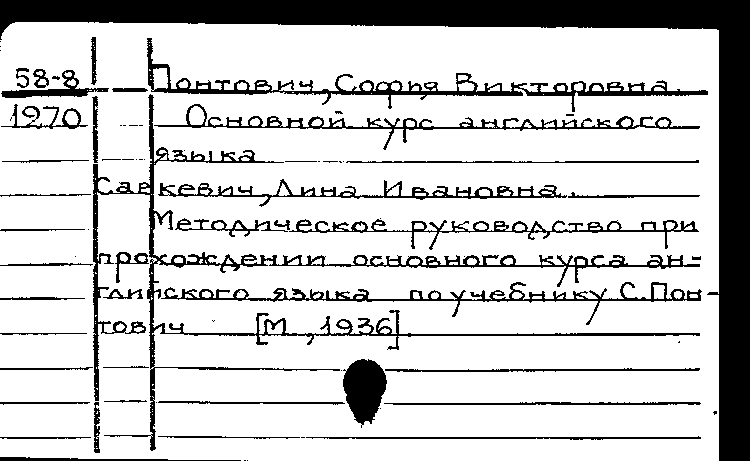 58-8 Понтович, Софья Викторовна.
1970 Основной курс английского
языка
Савкевич, Лина Ивановна.
Методическое руководство при
прохождении основного курса ан-
глийского языка по учебнику С.Пон-
тович [М., 1936].